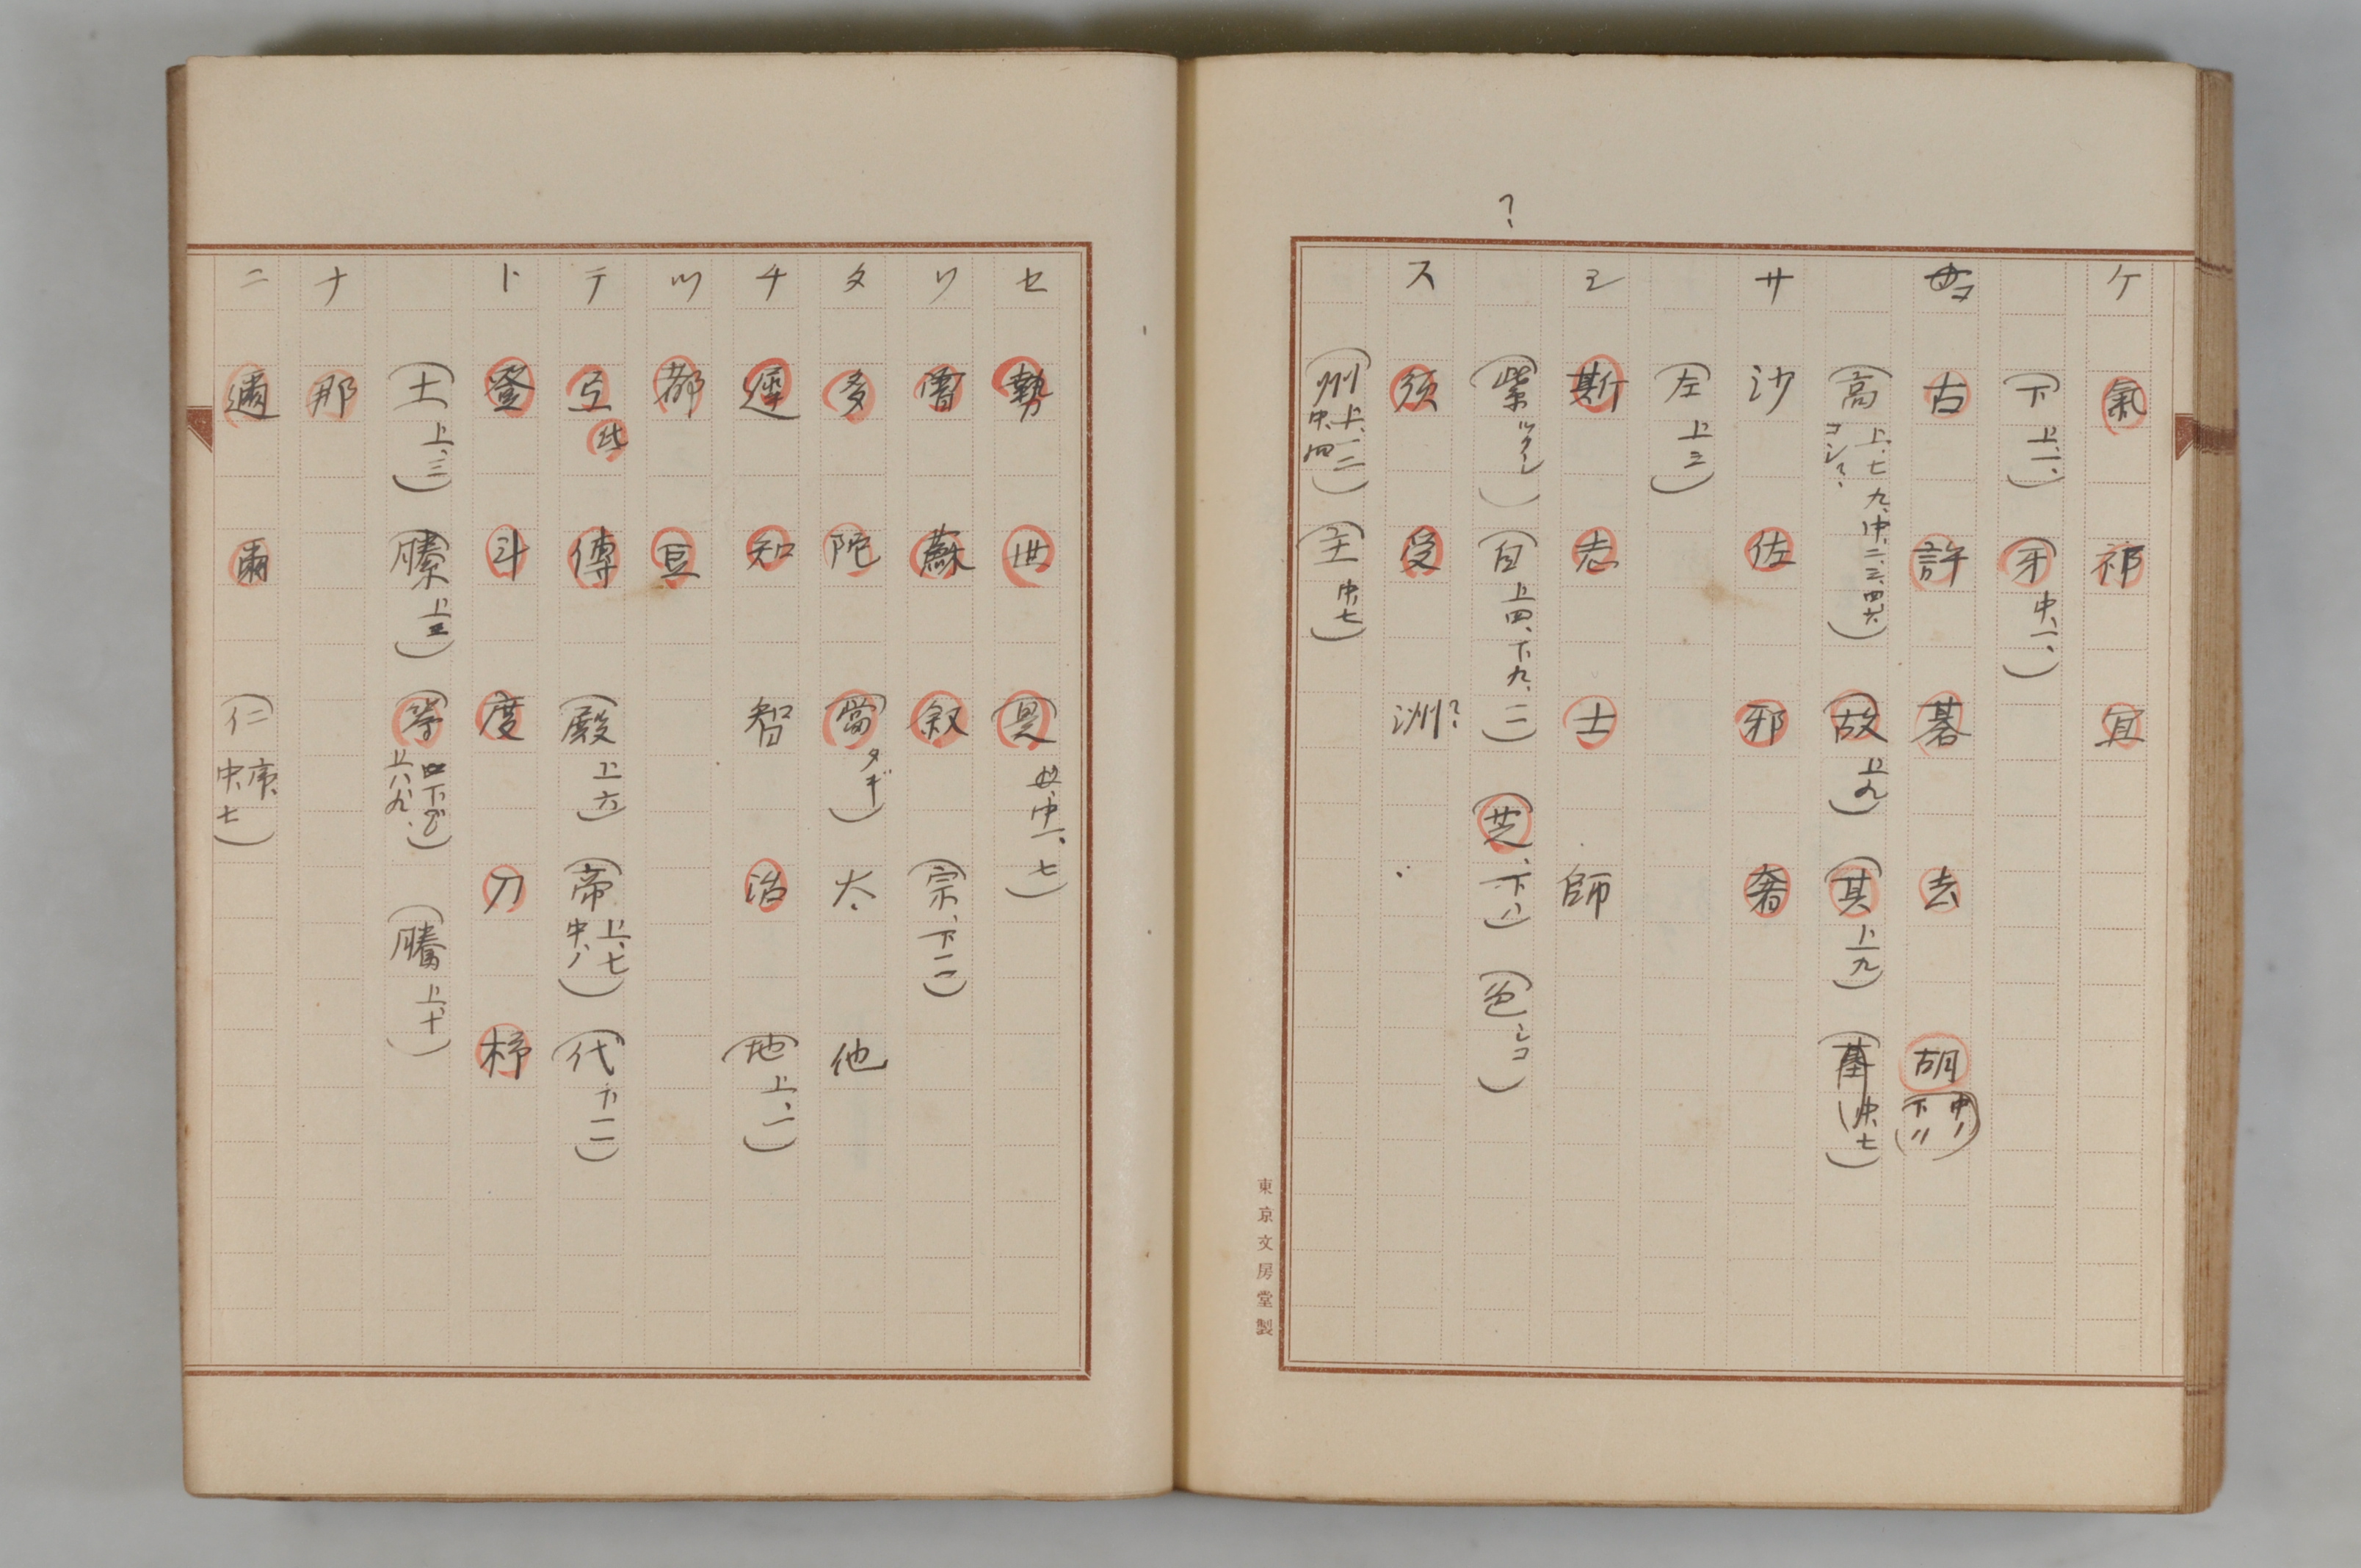 ケ 氣 祁 宜
(下 上、一、) (牙 中、一、)
コ 古 許 碁 去 胡 (中ノ 下〃)
(高 上、七 九、中、二、三、四、六、 コシ?、) (故 上九) (其 上九) (基 中、七)
サ 沙 佐 邪 奢
(左 上三)
シ 斯 志 士 師
? (紫 ツクシ) (自 上四、下九、一一) (芝、下八) (色 シコ)
ス 須 受 洲?
(州 上、二二 中、四) (主 中、七)
東京文房堂製
セ 勢 世 (是 中一、七)
ソ 曽 蘇 叙 (宗、下二一)
タ 多 陀 (當 タギ) 太、 他
チ 遲 知 智 治 (地 上、一)
ツ 都 豆
テ 弖 傳 (殿 上六) (帝 上、七 中、ノ) (代 下一一)
ト 登 斗 度 刀 杼
(土 上、三) (縢 上三) (等 上八、九、) (騰 上、十)
ナ 那
ニ 邇 爾 (仁 中、七)